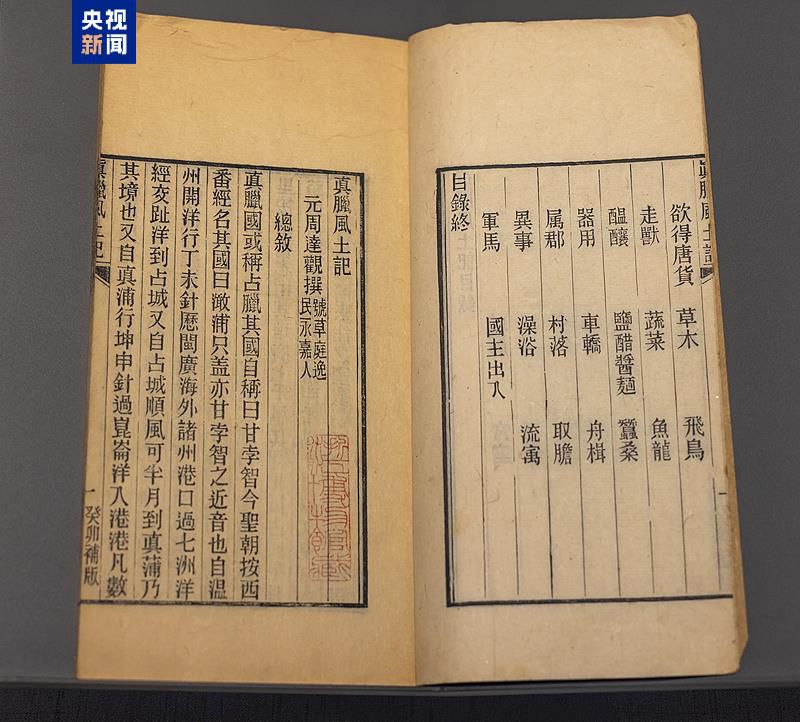 央视
新闻
真臘風土記
欲得唐貨 草木 飛鳥
走獸 蔬菜 魚龍
醖釀 鹽醋醤麵 蠶桑
器用 車轎 舟楫
属郡 村落 取膽
異事 澡浴 流寓
軍馬 國主出入
目錄終
真臘風土記
元周達觀撰 號草庭逸民永嘉人
總敘
真臘國或稱占臘其國自稱曰甘孛智今聖朝按西
番經名其國曰澉浦只盖亦甘孛智之近音也自温
州開洋行丁未針歷閩廣海外諸州港口過七洲洋
經交趾洋到占城又自占城順風可半月到真蒲乃
其境也又自真蒲行坤申針過崑崙洋入港港凡數
真臘風土記
一
癸卯補版